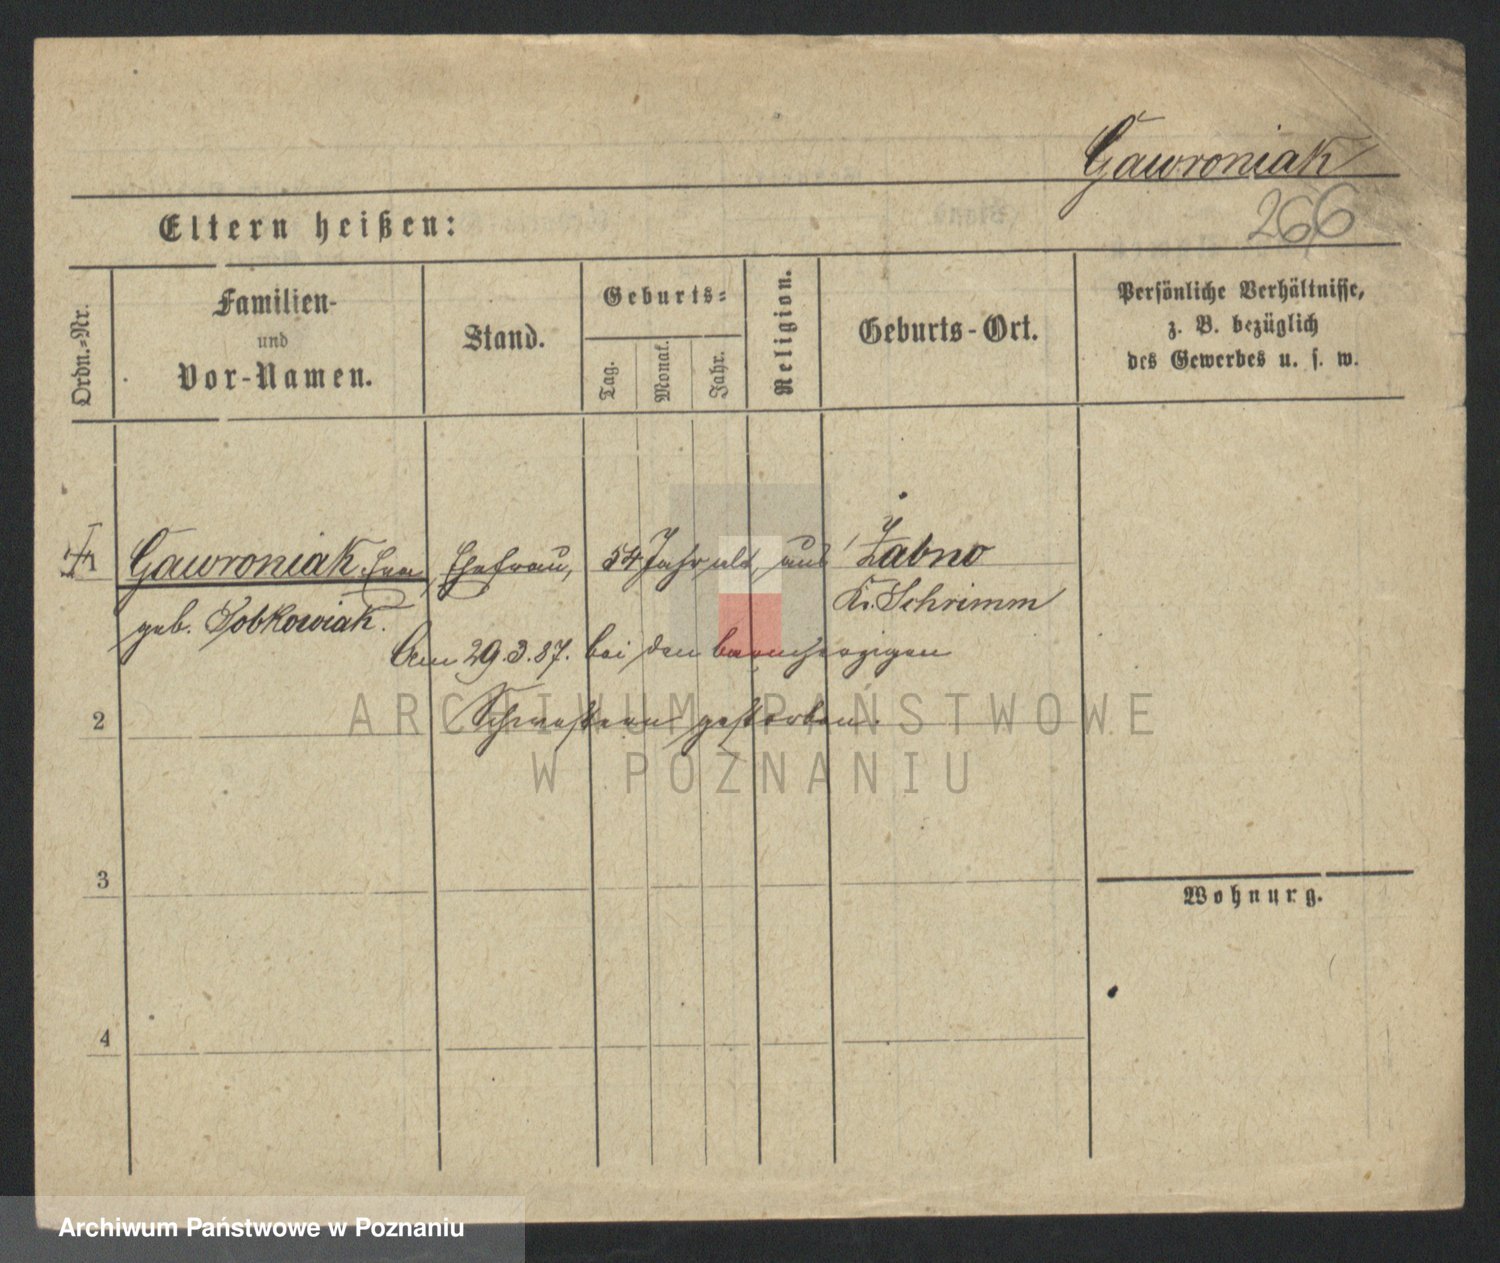 Gawroniak
266
Eltern heißen:
Ordn.-Nr.
Familien-
und
Vor-Namen.
Stand.
Geburts-
Tag.
Monat.
Jahr.
Religion.
Geburts-Ort.
Persönliche Verhältnisse,
z. B. bezüglich
des Gewerbes u. s. w.
1 Gawroniak Eva, Ehefrau, 54 Jahr alt, aus Żabno
geb. Sobkowiak. Kr. Schrimm
Am 29.3.87. bei den barmherzigen
Schwestern gestorben.
2
3
4
Wohnung.
ARCHIWUM PAŃSTWOWE
W POZNANIU
Archiwum Państwowe w Poznaniu